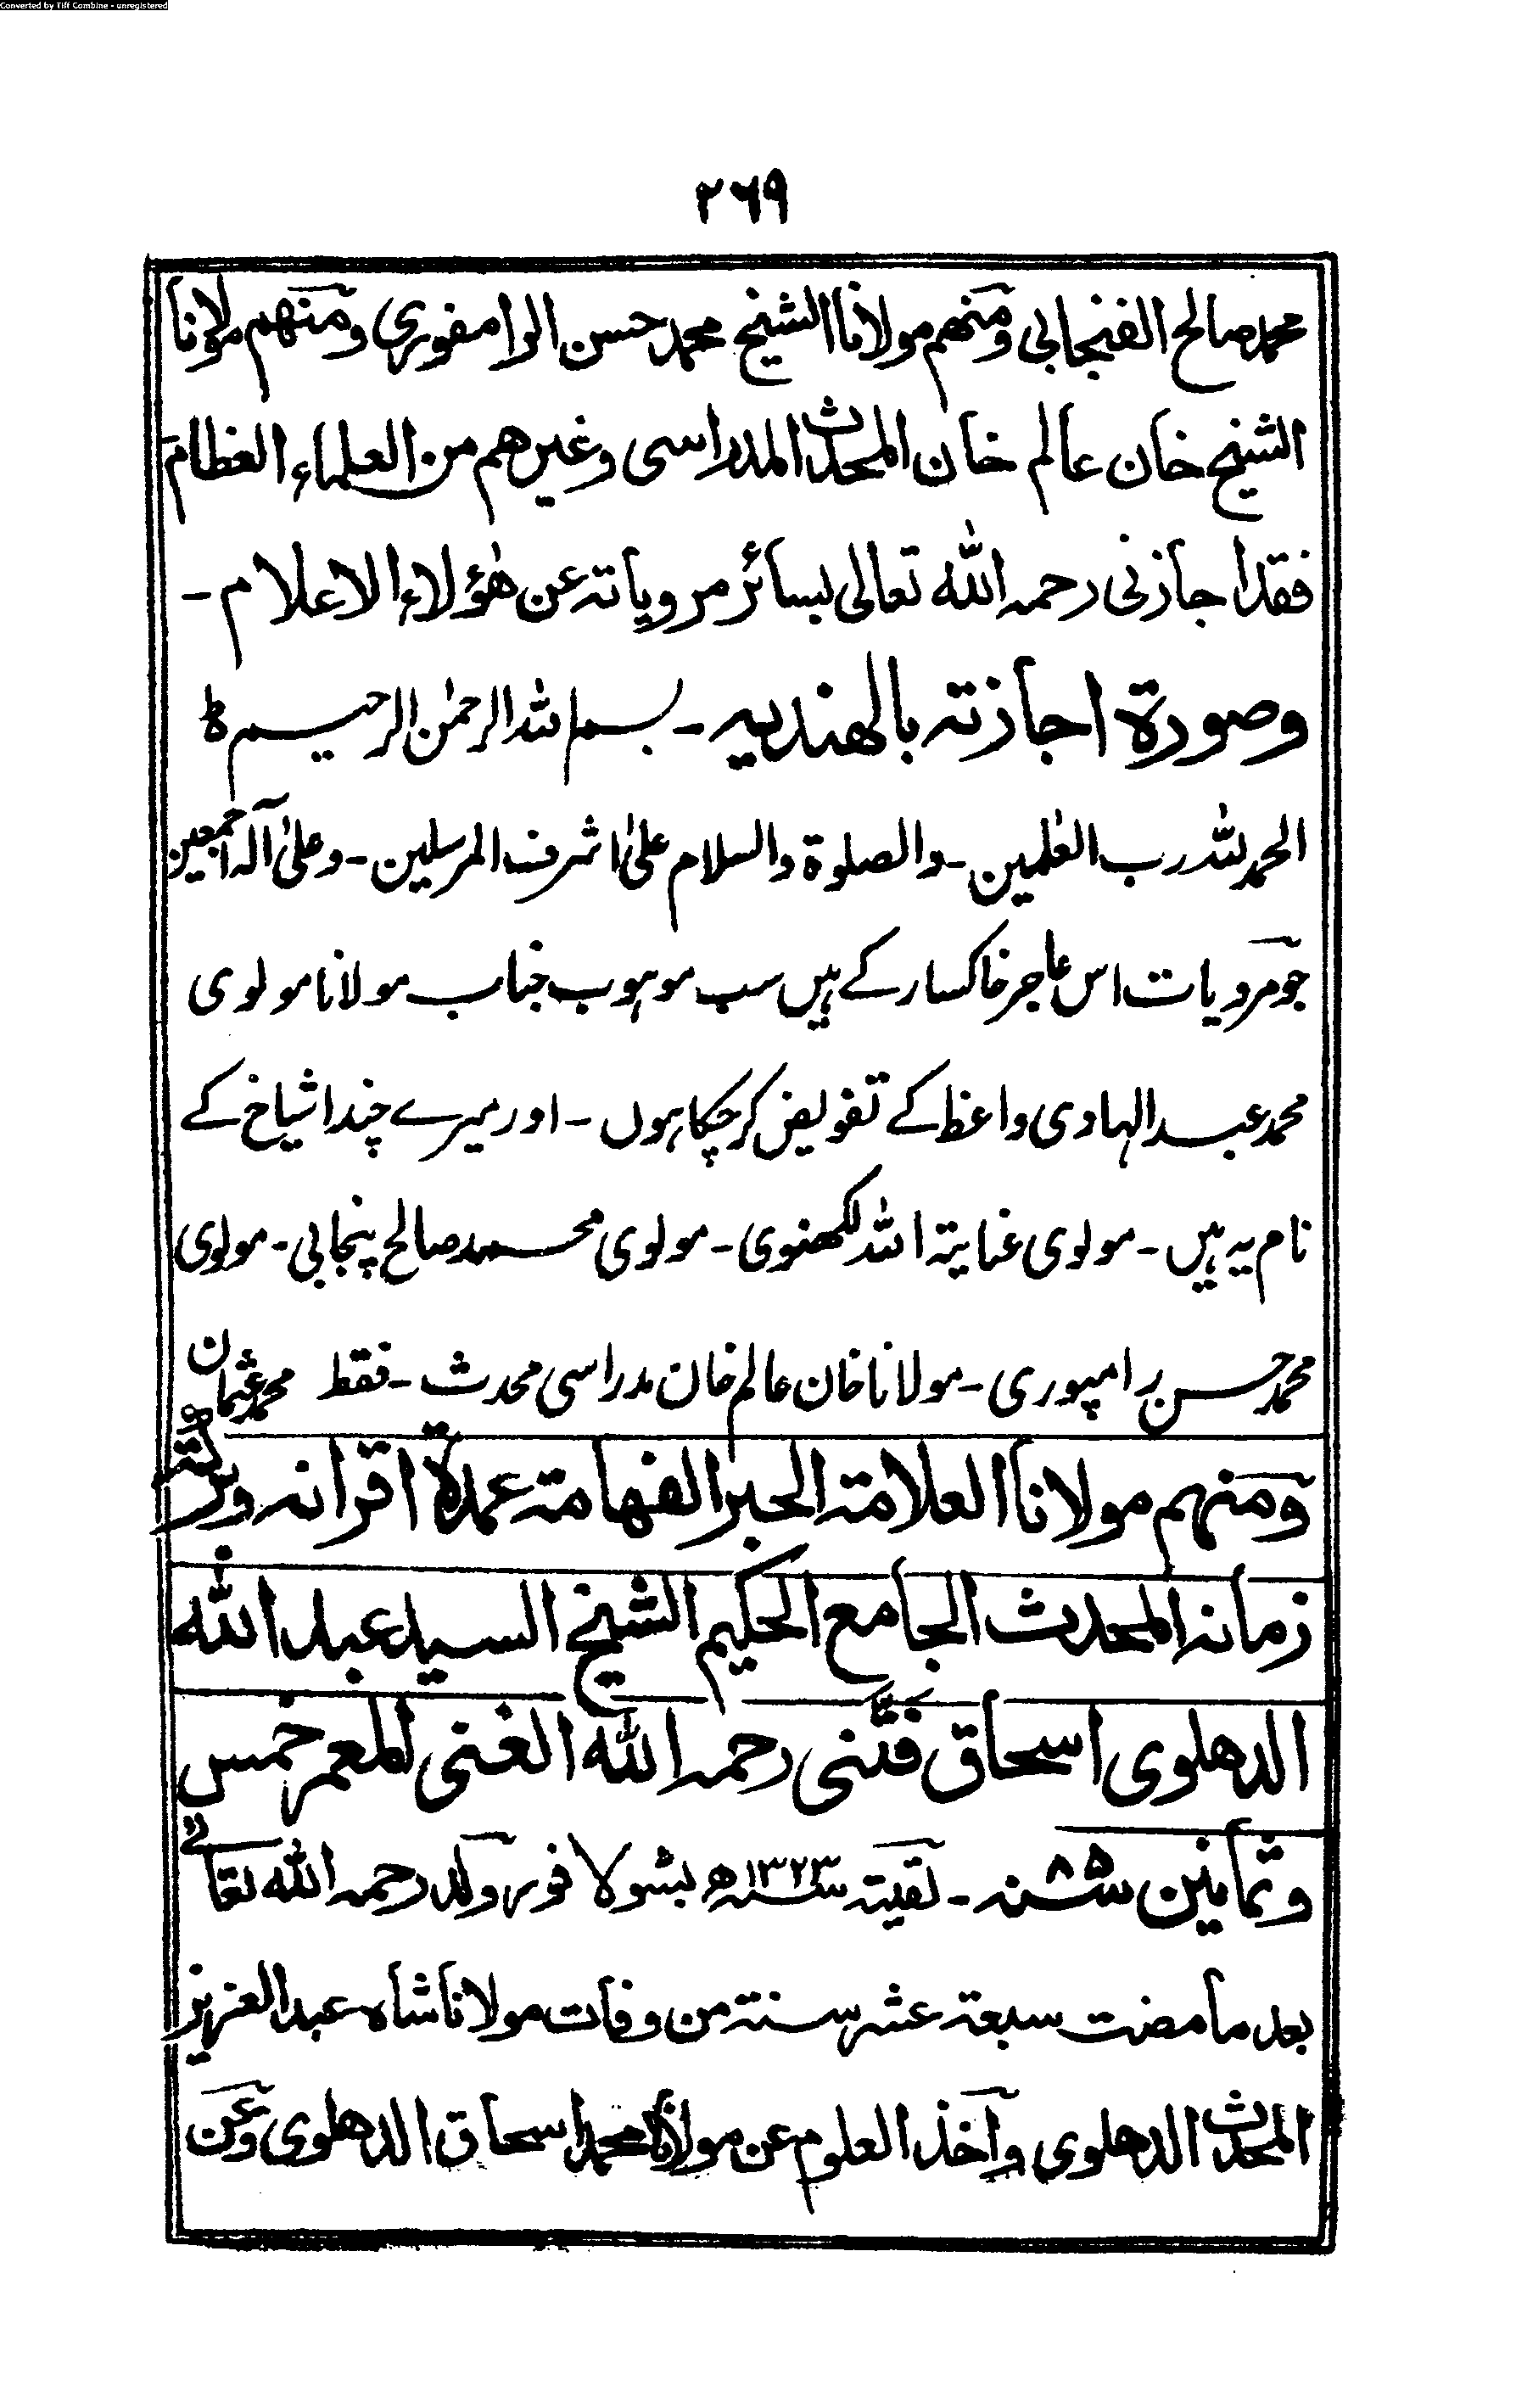 Converted by Tiff Combine - unregistered
٢٦٩
محمد صالح الفنجابي ومنهم مولانا الشيخ محمد حسن الرامفوري ومنهم مولانا
الشيخ خان عالم خان المحدث المدراسي وغيرهم من العلماء العظام
فقد اجازني رحمه الله تعالى بسائر مروياته عن هؤلاء الاعلام -
وصورة اجازته بالهندية - بسم الله الرحمن الرحيم ط
الحمد لله رب العٰلمين - والصلوة والسلام علىٰ اشرف المرسلين - وعلىٰ آله اجمعين
جو مرویات اس عاجز خاکسار کے ہیں سب موہوب جناب مولانا مولوی
محمد عبد الہادی واعظ کے تفویض کر چکا ہوں - اور میرے چند اشیاخ کے
نام یہ ہیں - مولوی عنایتہ اللہ لکھنوی - مولوی محمد صالح پنجابی - مولوی
محمد حسن رامپوری - مولانا خان عالم خان مدراسی محدث - فقط محمد عثمان
ومنهم مولانا العلامة الحبر الفهامة عمدة اقرانه وبركة
زمانه المحدث الجامع الحكيم الشيخ السيد عبد الله
الدهلوي اسحاق فَتَّنِي رحمه الله الغني المعمر خمس
وثمانين ٨٥ سنه - لقيته سنه ١٣٢٣ه بشولافور ولد رحمه الله تعالے
بعد ما مضت سبعة عشر سنة من وفات مولانا شاه عبد العزيز
المحدث الدهلوي وآخذ العلوم عن مولانا محمد اسحاق الدهلوي وعن